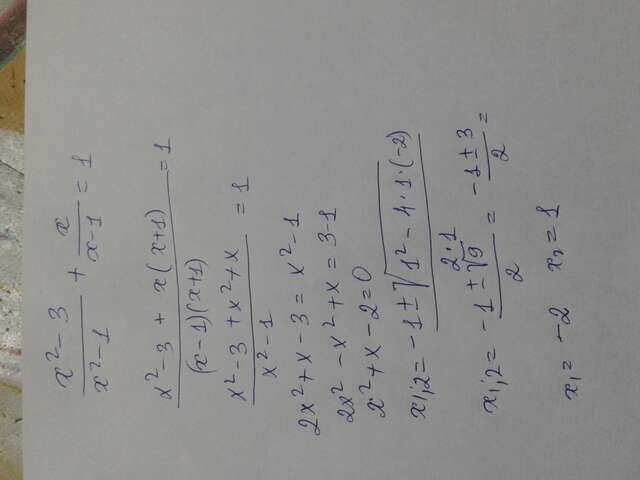 (x²-3)/(x²-1) + x/(x-1) = 1
(x²-3 + x(x+1))/((x-1)(x+1)) = 1
(x²-3+x²+x)/(x²-1) = 1
2x²+x-3 = x²-1
2x²-x²+x = 3-1
x²+x-2=0
x₁;₂ = (-1±√(1²-4·1·(-2)))/(2·1)
x₁;₂ = (-1±√9)/2 = (-1±3)/2 =
x₁ = -2 x₂ = 1